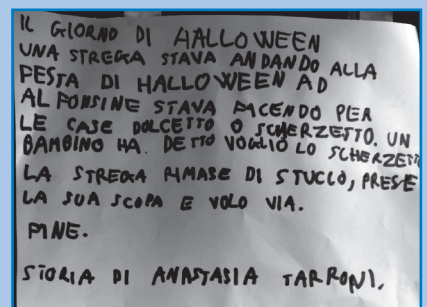 IL GIORNO DI HALLOWEEN
UNA STREGA STAVA ANDANDO ALLA
FESTA DI HALLOWEEN AD
ALFONSINE STAVA FACENDO PER
LE CASE DOLCETTO O SCHERZETTO. UN
BAMBINO HA DETTO VOGLIO LO SCHERZETTO
LA STREGA RIMASE DI STUCCO, PRESE
LA SUA SCOPA E VOLO VIA.
FINE.
STORIA DI ANASTASIA TARRONI.